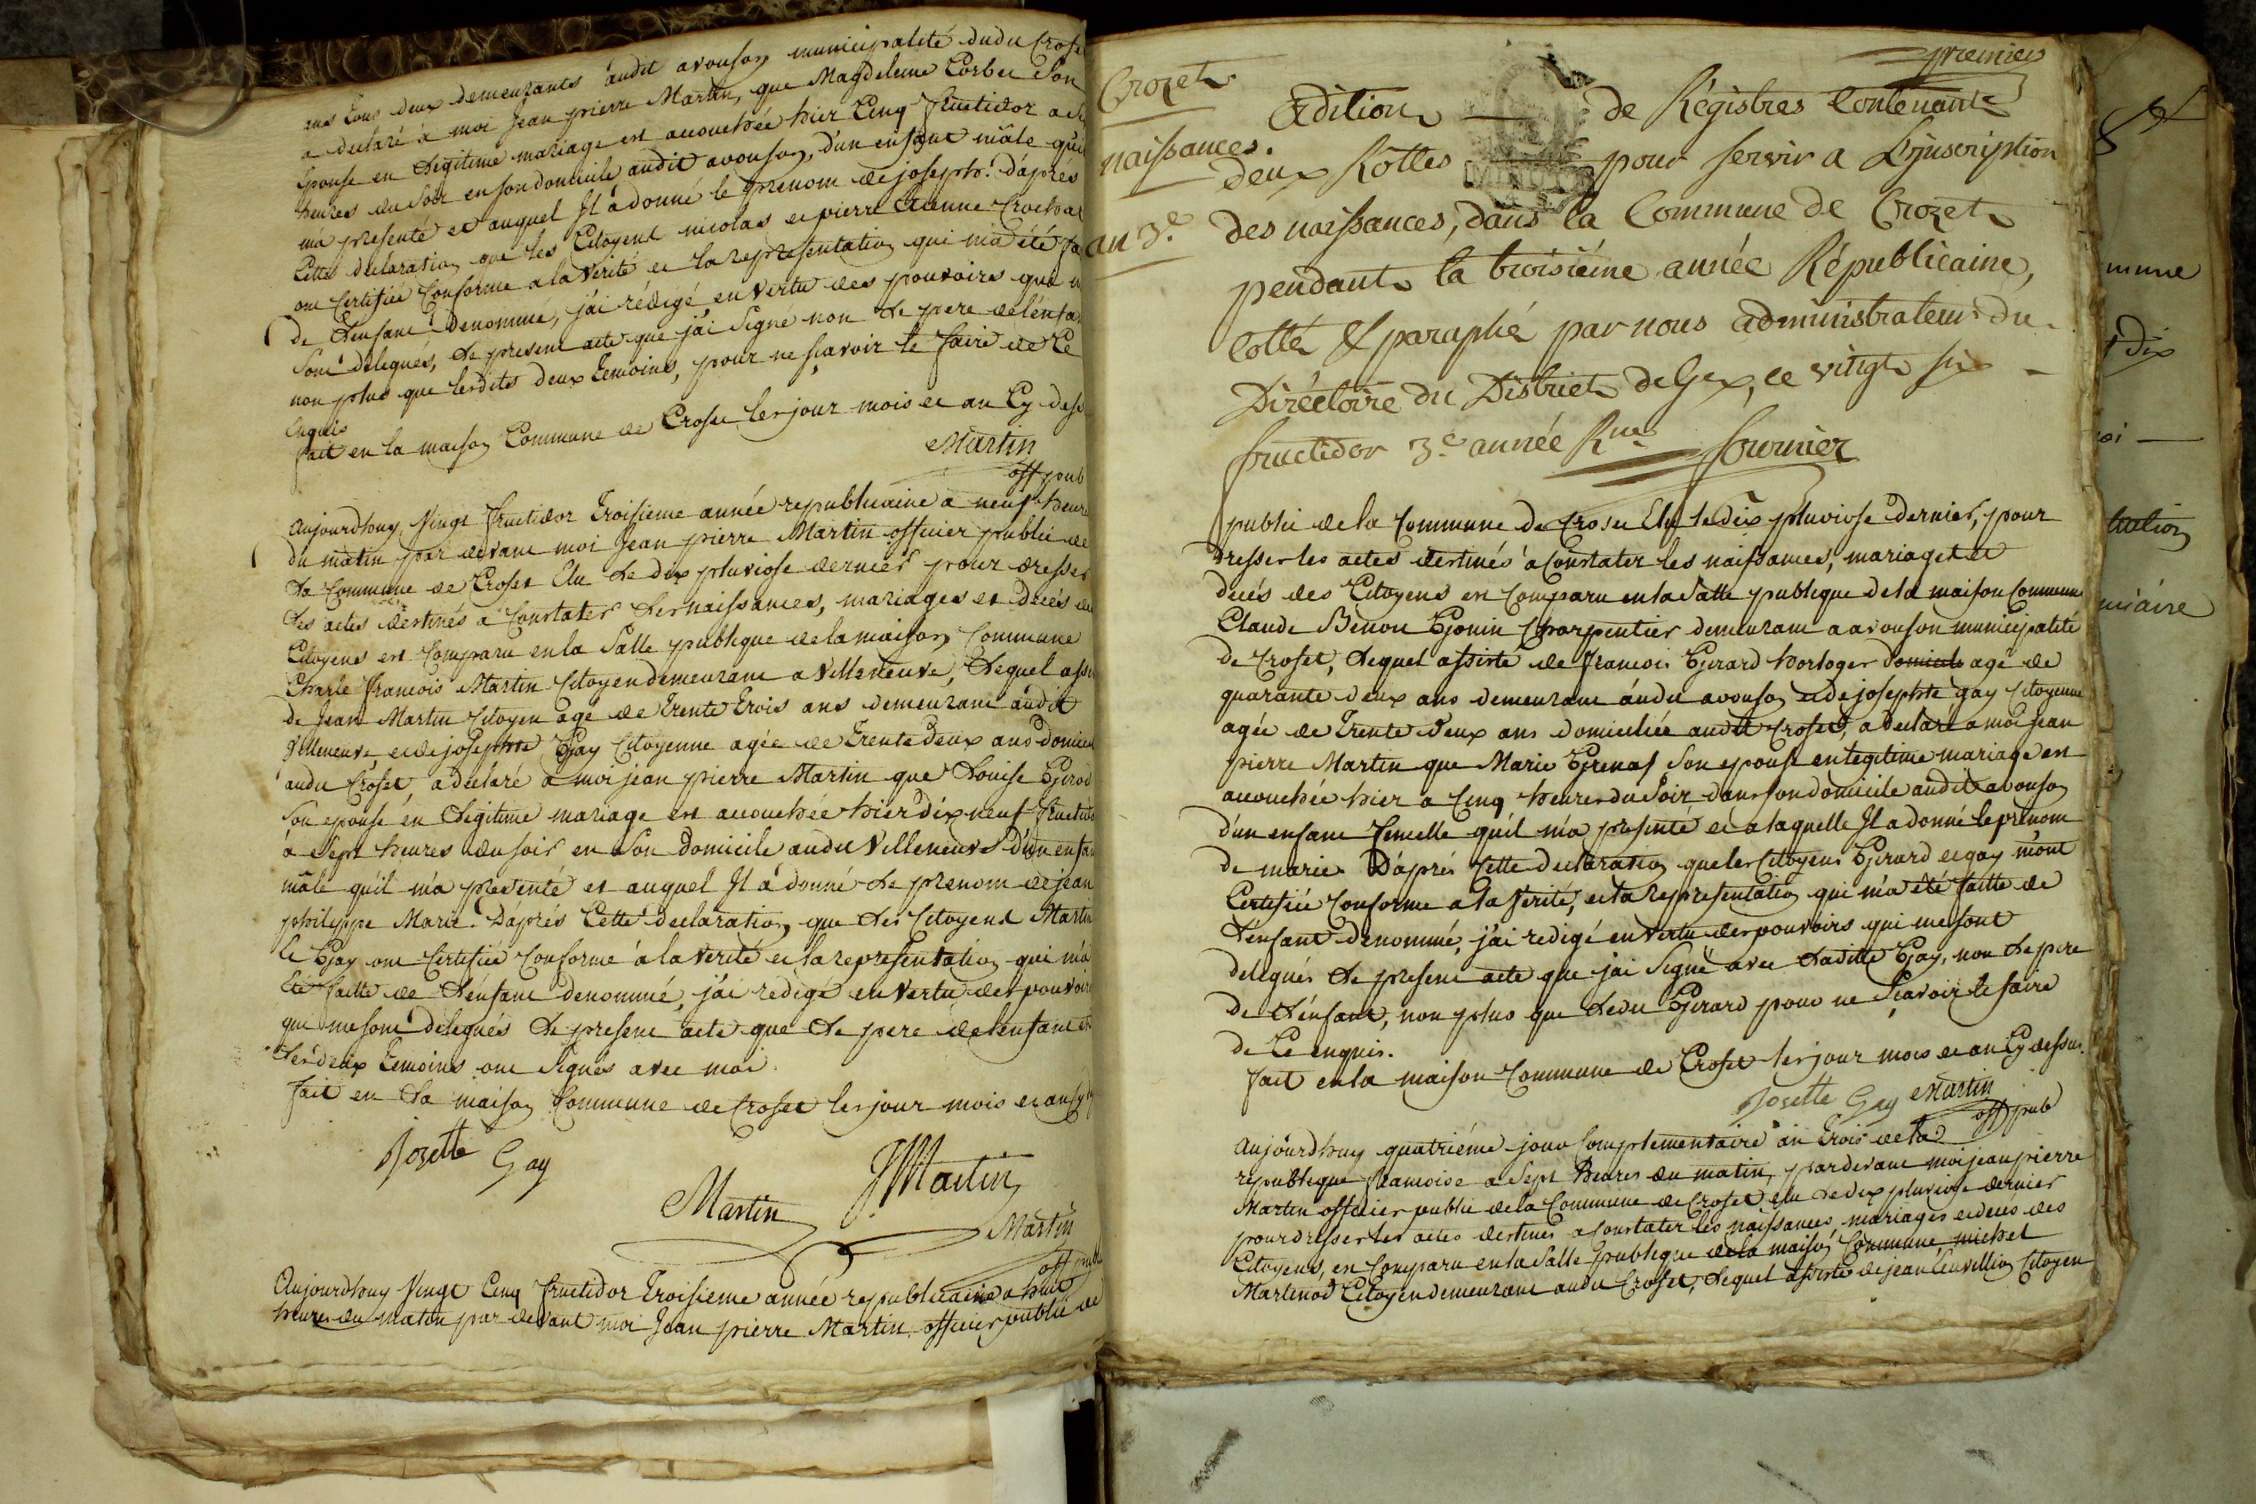 ans tous deux demeurants audit avouson municipalité dudit Croset
a declaré a moi Jean pierre Martin, que Magdeleine Corbet Son
Epouse en Legitime mariage est accouchée hier Cinq fructidor a
heures du Soir en son domicile audit avouson, d'un enfant mâle qu'il
m'a presenté et auquel Il a donné le prenom de joseph. D'après
Cette declaration que les Citoyens nicolas et pierre Etienne
ont Certifiée Conforme a la Verité et la representation qui m'a été
de L'enfant denommé, j'ai rédigé en Vertu des pouvoirs qui
Sont delegués, Le present acte que j'ai Signé non Le pere de l'enfant
non plus que lesdits deux Temoins, pour ne sçavoir le faire de Ce
Enquis
fait en la maison Commune de Croset les jour mois et an Cy
Martin
off pub
Aujourdhuy Vingt fructidor Troisieme année republicaine a neuf heures
du matin par devant moi Jean pierre Martin officier public de
La Commune de Croset Elu Le dix pluviose dernier pour dresser
Les actes destinés a Constater Les naissances, mariages et Decés des
Citoyens est Comparu en la Salle publique de la maison Commune
Charle francois Martin Citoyen demeurant a Villeneuve, Lequel
de Jean Martin Citoyen agé de Trente Trois ans demeurant audit
Villeneuve et de josephte Gay Citoyenne agée de Trente deux ans
audit Croset, a declaré a moi jean pierre Martin que Louise Girod
Son epouse en Legitime mariage est accouchée hier dix neuf fructidor
à Sept heures du soir en Son Domicile audit Villeneuve D'un enfant
mâle qu'il m'a presenté et auquel Il a donné Le prenom de jean
philippe Marie. D'après Cette declaration que Les Citoyens Martin
Et Gay ont Certifiée Conforme à la Verité et la representation qui m'a
Eté faitte de L'enfant denommé, j'ai redigé en Vertu des pouvoirs
qui me sont delegués Le present acte que Le pere de l'enfant et
Les deux Temoins ont Signés avec moi.
fait en La maison Commune de Croset les jour mois et an
Josette Gay
Martin
JMartin
Martin
off pub
Aujourdhuy Vingt Cinq fructidor Troisieme année republicaine a huit
heures du matin par devant moi Jean pierre Martin officier public de
premier
Crozet
naissances.
an 3.e
Edition de Régistres Contenant
deux Rolles pour servir a L'inscription
des naissances, dans la Commune de Crozet
pendant la troisiéme année Républicaine,
Cotté & paraphé par nous administrateur du
Diréctoire du District de Gex, ce vingt six
fructidor 3.e année Rne Fournier
public de la Commune de Croset Elu le dix pluviose dernier, pour
Dresser les actes destinés à Constater les naissances, mariages et
decés des Citoyens est Comparu en la Salle publique de la maison Commune
Claude Benoit Gonin Charpentier demeurant a avouson municipalité
de Croset, Lequel assisté de francois Girard horloger agé de
quarante deux ans demeurant audit avouson et de josephte gay Citoyenne
agée de Trente Deux ans domiciliée audit Croset, a Declaré a moi jean
pierre Martin que Marie Grenas Son epouse en legitime mariage est
accouchée hier a Cinq heures du Soir dans son domicile audit avouson
d'un enfant femelle qu'il m'a presenté et a laquelle Il a donné le prenom
de marie. D'après Cette declaration que les Citoyens Girard et gay m'ont
Certifiée Conforme a la Verité, et la representation qui m'a été faitte de
L'enfant denommé, j'ai redigé en Vertu des pouvoirs qui me sont
delegués Le present acte que j'ai Signé avec Laditte Gay, non Le pere
de L'enfant, non plus que Ledit Girard pour ne Sçavoir le faire
de Ce enquis.
fait en la maison Commune de Croset les jour mois et an Cy dessus.
Josette Gay Martin
off pub
Aujourdhuy quatriéme jour Complementaire an Trois de la
republique francoise a Sept heures du matin, par devant moi jean pierre
Martin officier public de la Commune de Croset elu Le dix pluviose dernier
pour dresser les actes destinés a Constater les naissances mariages et decés des
Citoyens, est Comparu en la Salle publique de la maison Commune, michel
Martenod Citoyen demeurant audit Croset, Lequel assisté de jean Citoyen
mmune
dix
oi